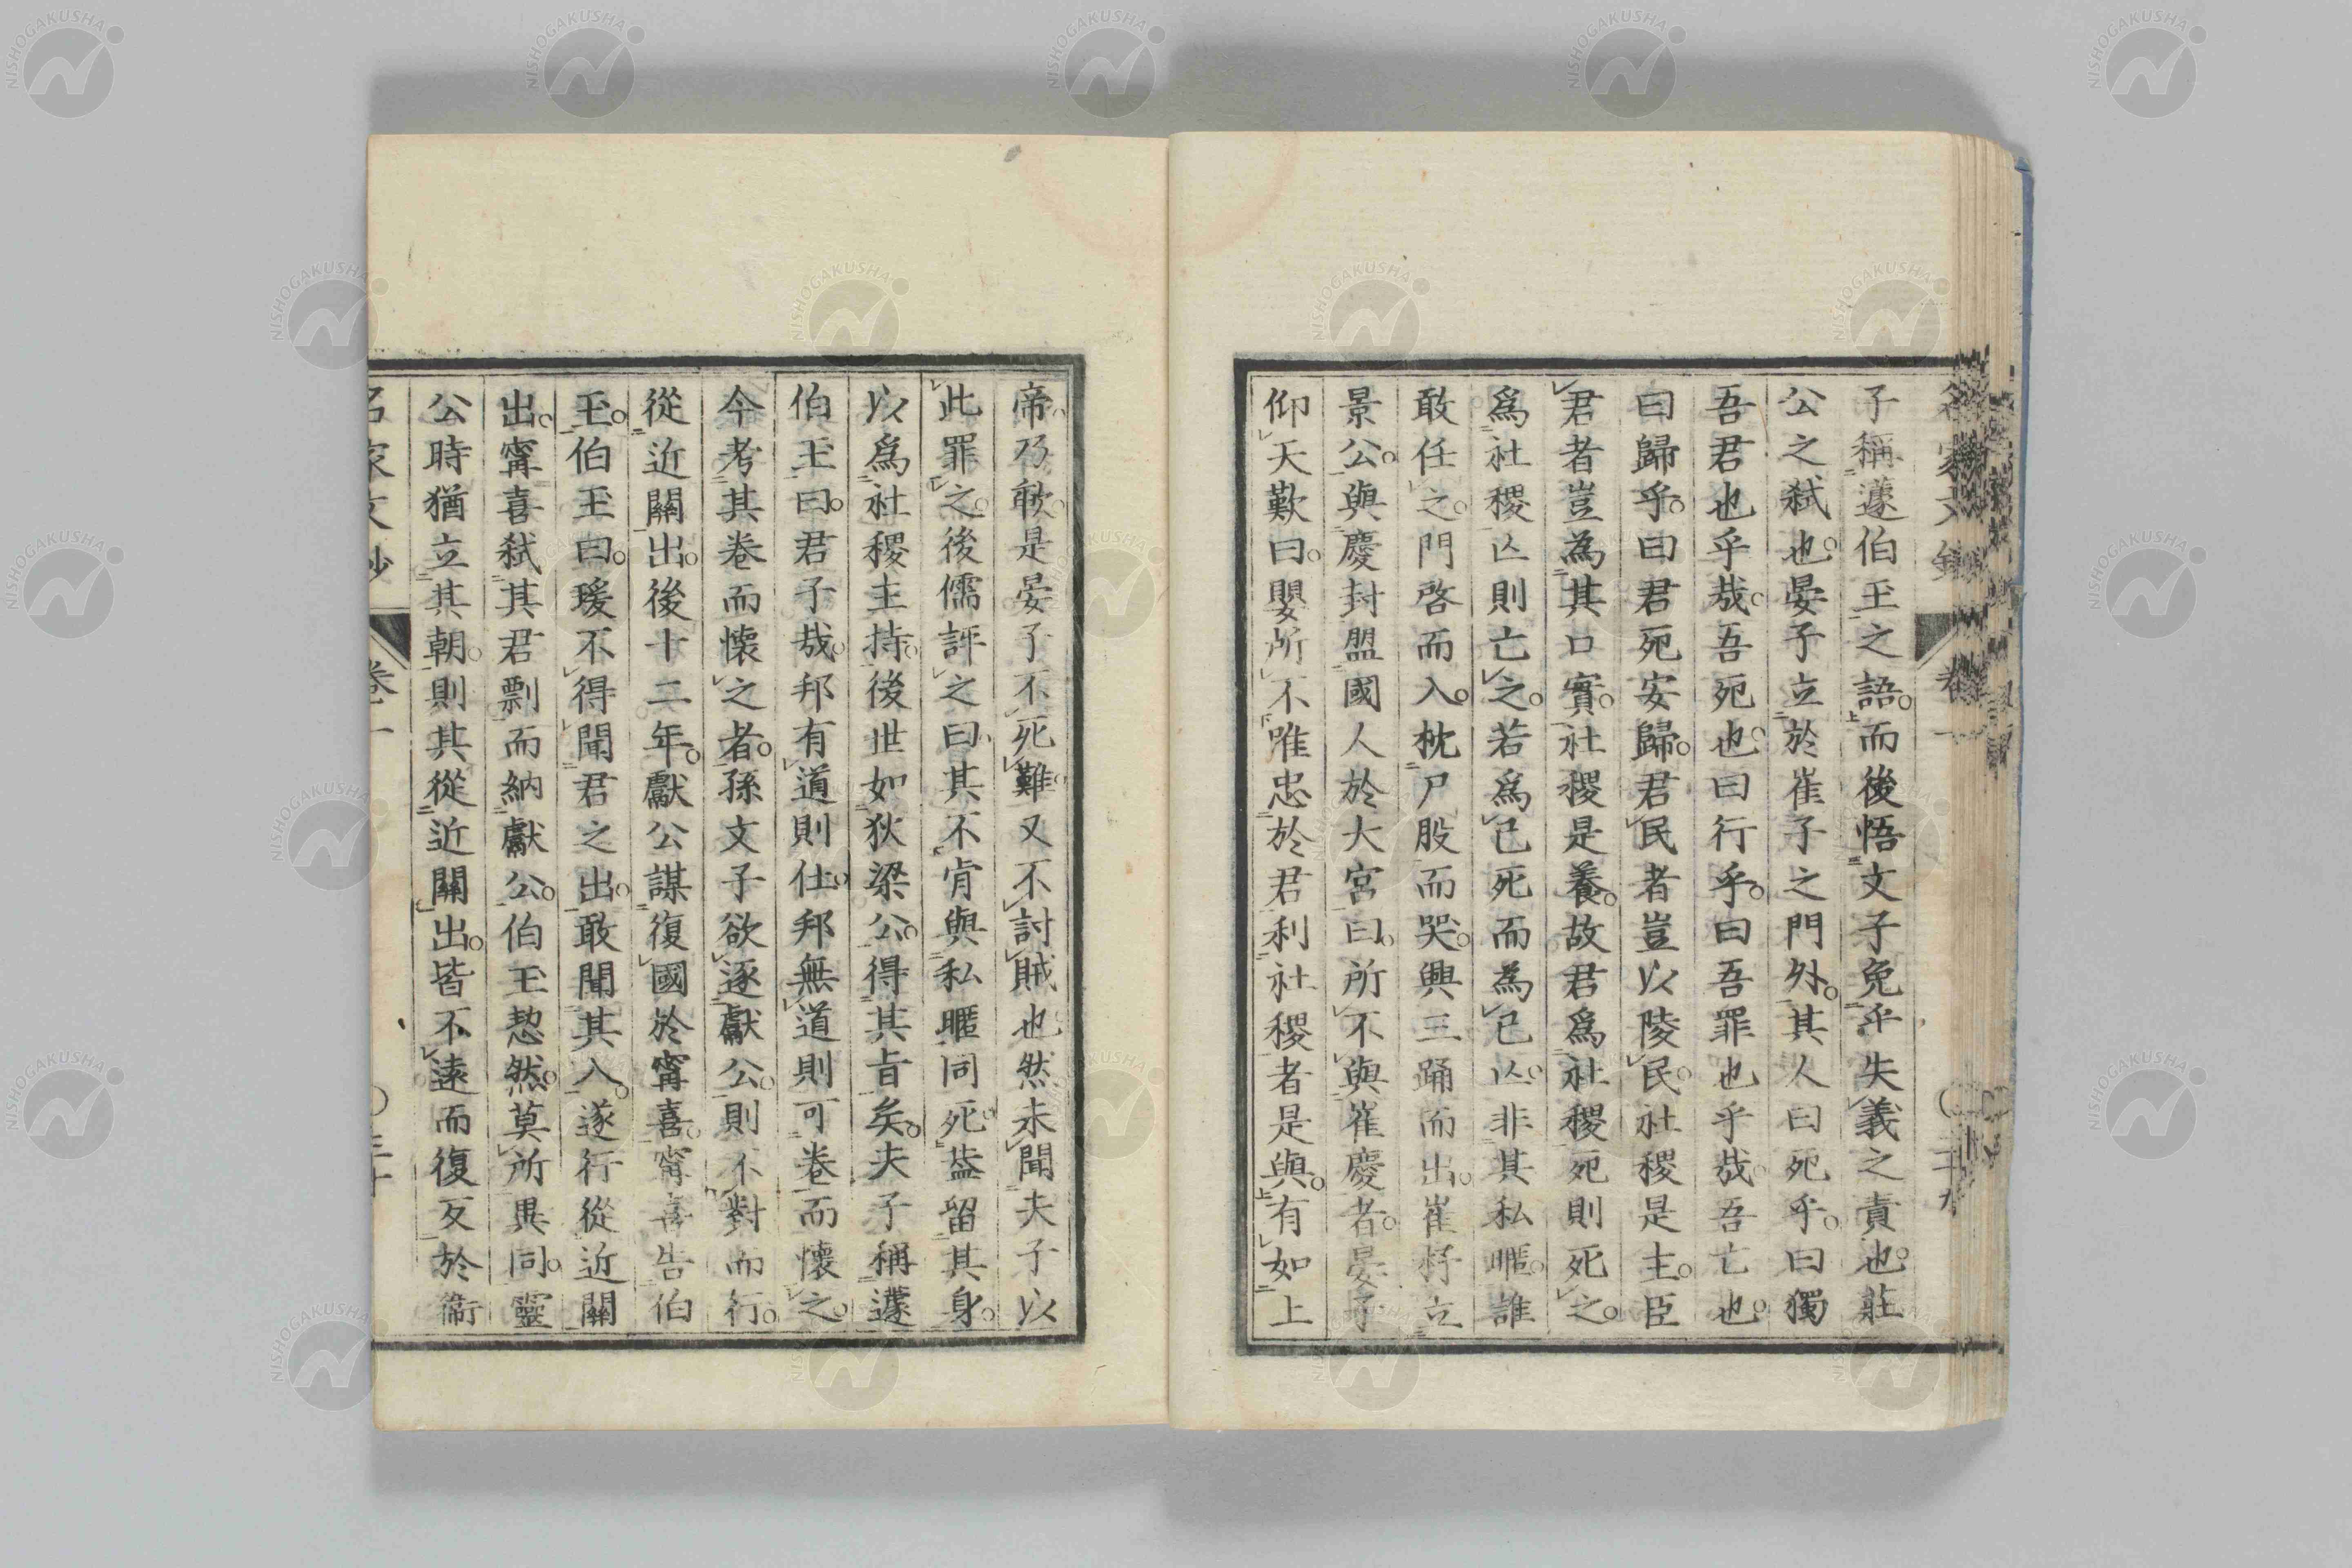 子稱蘧伯玉之語。而後悟文子免乎失義之責也。莊
公之弑也。晏子立於崔子之門外。其人曰死乎。曰獨
吾君也乎哉。吾死也。曰行乎。曰吾罪也乎哉。吾亡也。
曰歸乎。曰君死安歸。君民者豈以陵民。社稷是主。臣
君者豈為其口實。社稷是養。故君爲社稷死則死之。
爲社稷亾則亡之。若爲己死而為己亾。非其私暱。誰
敢任之。門啓而入。枕尸股而哭。興三踊而出。崔杼立
景公。與慶封盟國人於大宮。曰。所不與崔慶者。晏子
仰天歎曰。嬰所不唯忠於君利社稷者是與。有如上
帝。乃歃。是晏子不死難。又不討賊也。然未聞夫子以
此罪之。後儒評之曰。其不肯與私暱同死。葢留其身。
以爲社稷主持。後世如狄梁公。得其旨矣。夫子稱蘧
伯玉曰。君子哉。邦有道則仕。邦無道則可卷而懷之。
今考其卷而懷之者。孫文子欲逐獻公。則不對而行。
從近關出。後十二年。獻公謀復國於甯喜。甯喜告伯
玉。伯玉曰。瑗不得聞君之出。敢聞其入。遂行從近關
出。甯喜弑其君剽而納獻公。伯玉恝然。莫所異同。靈
公時猶立其朝。則其從近關出。皆不遠而復反於衞
名家文抄
卷一
三十